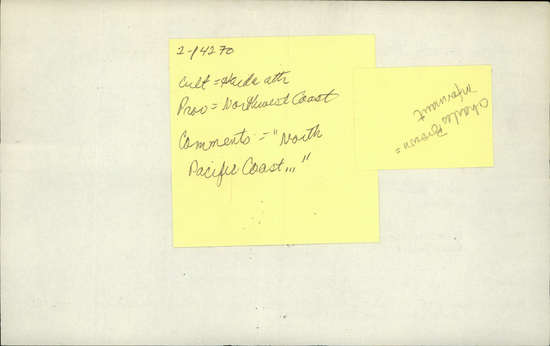 2-14270
Cult = Haida attr
Prov = Northwest Coast
Comments = "North
Pacific Coast..."
Charles Brown =
informant